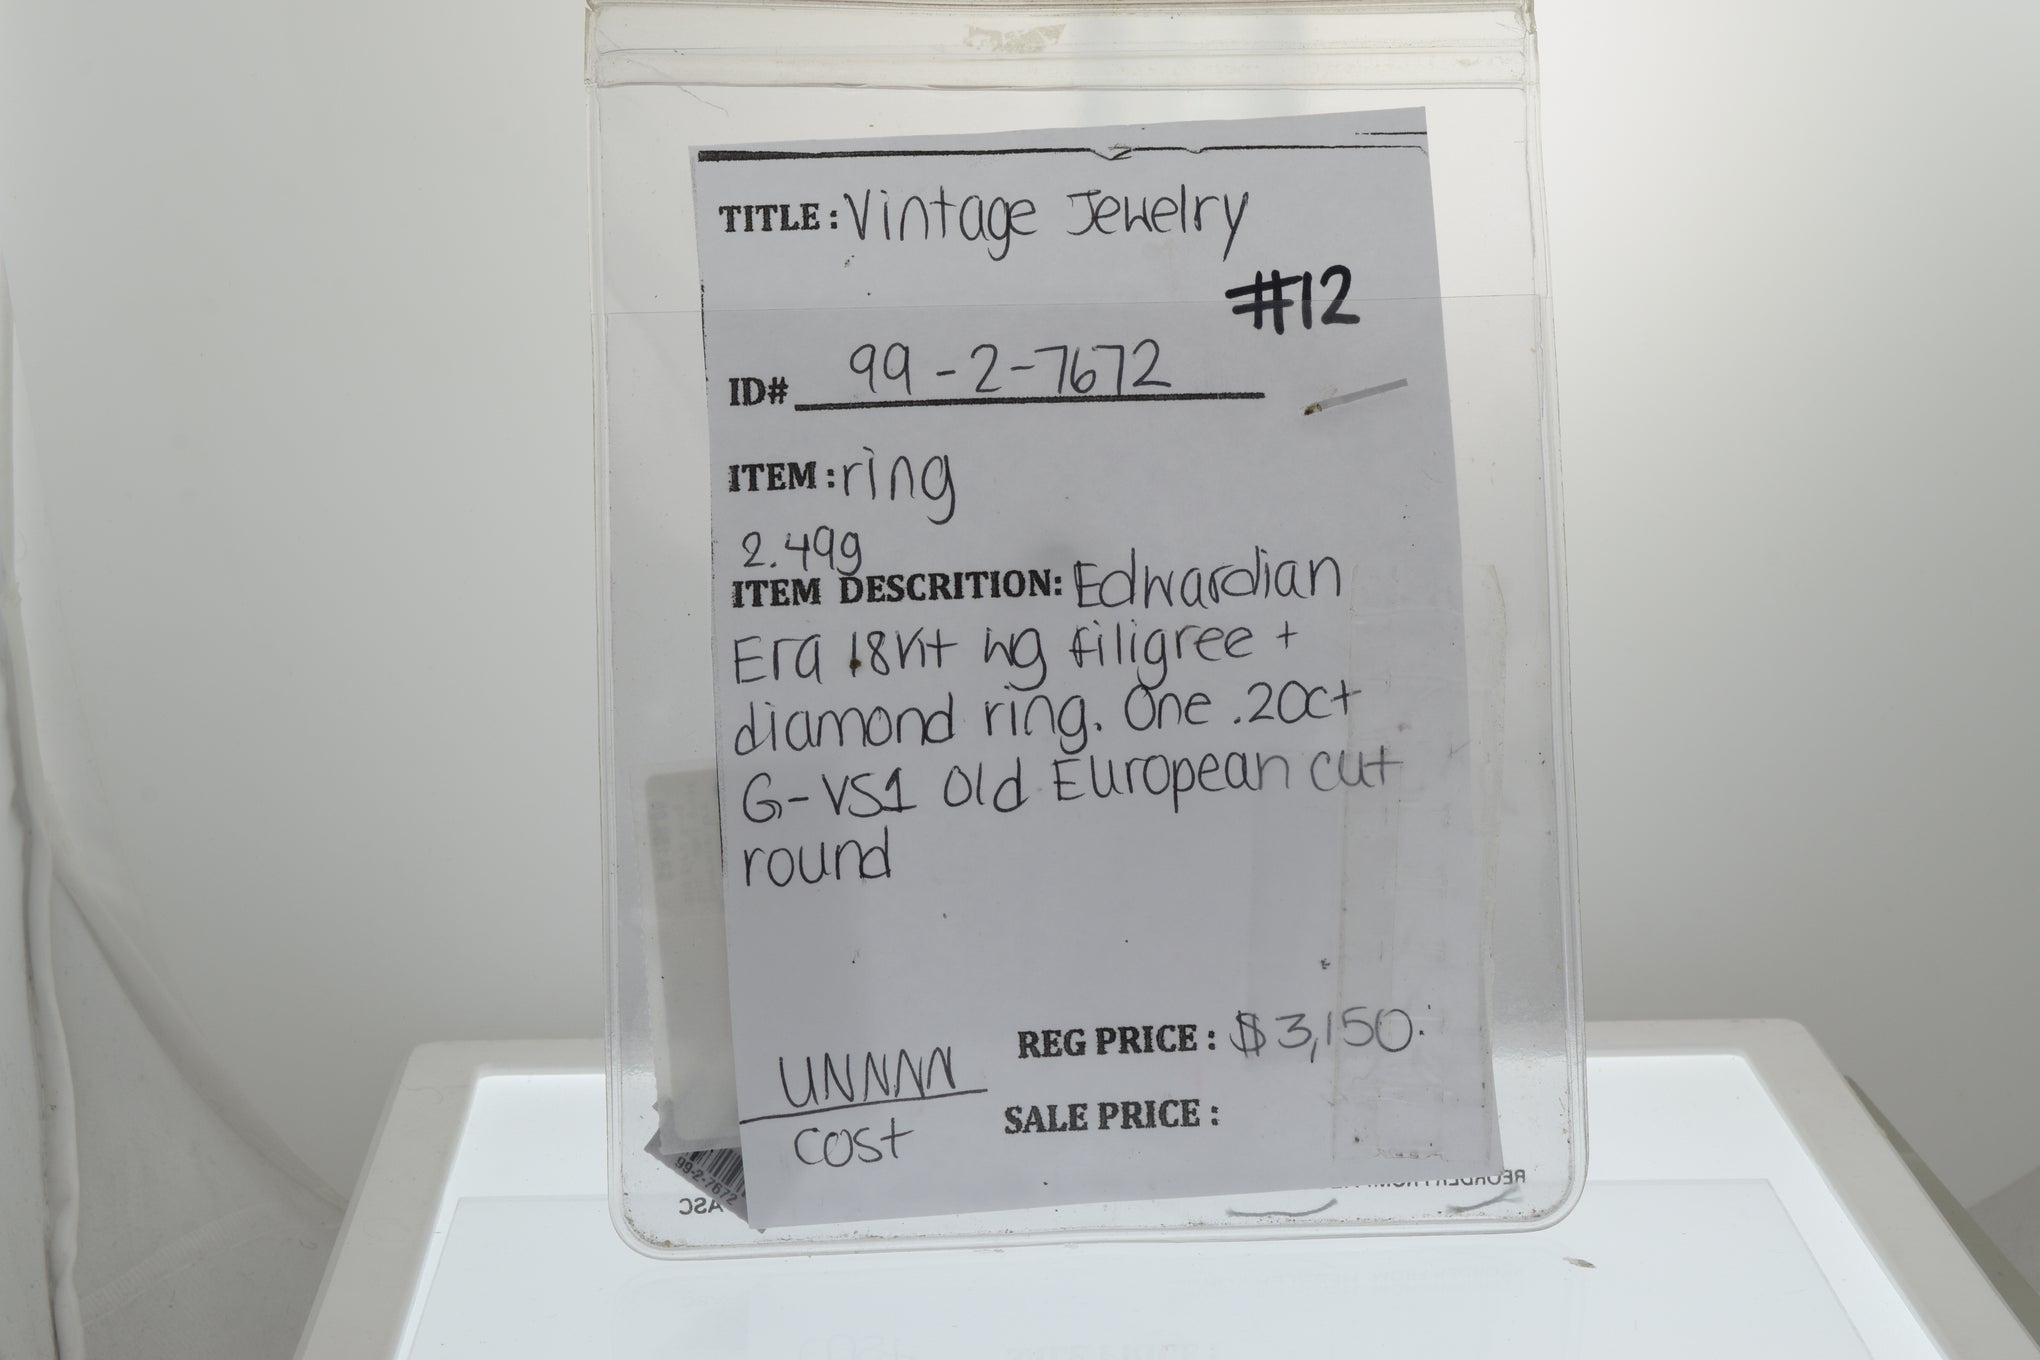 TITLE: Vintage Jewelry
#12
ID# 99-2-7672
ITEM: ring
2.49g
ITEM DESCRITION: Edwardian
Era 18Kt wg filigree +
diamond ring. One .20ct
G-VS1 Old European cut
round
REG PRICE: $3,150.
UNNNN
cost
SALE PRICE:
99-2-7672
ASC